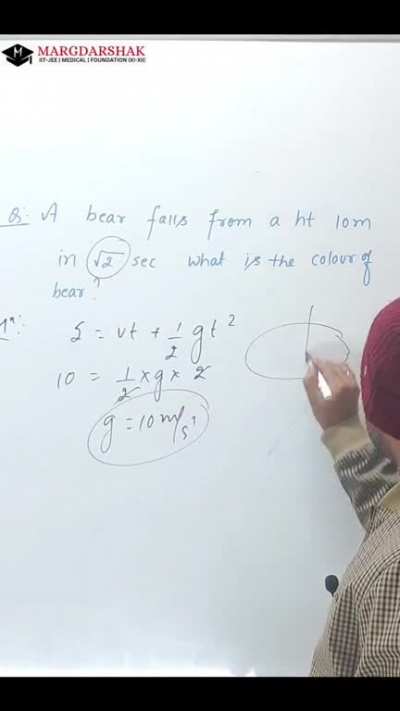 M
MARGDARSHAK
IIT-JEE | MEDICAL | FOUNDATION (XI-XII)
Q: A bear falls from a ht 10m
in √2 sec what is the colour of
bear?
S = ut + 1/2 gt²
10 = 1/2 × g × 2
g = 10 m/s²